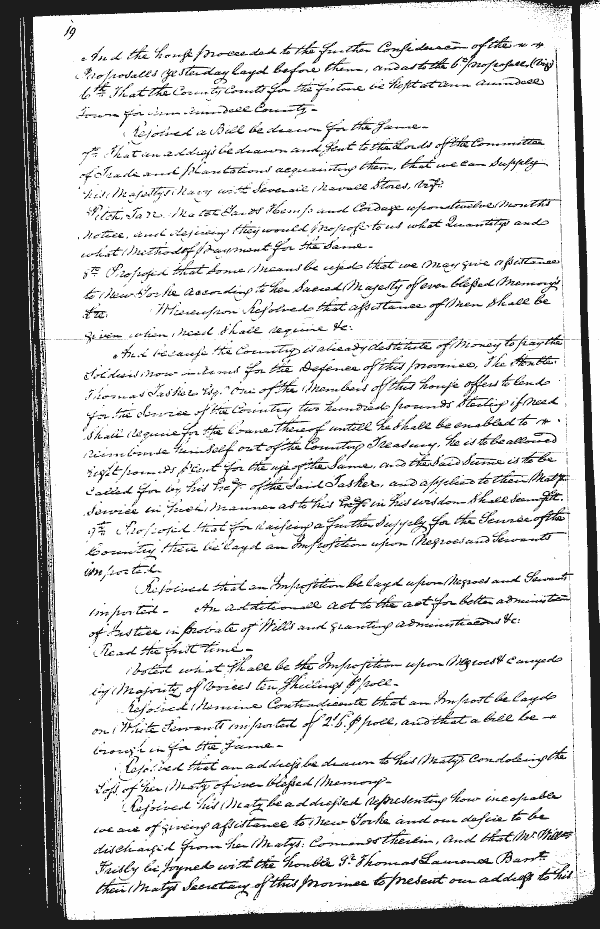 19
And the house proceeded to the further Consideracon of the
Proposalls yesterday layd before them, and as to the 6th proposse (viz)
6th That the County Courts for the future be kept at Ann Arundell
Town for Ann Arundell County -
Resolved a Bill be drawn for the same -
7th That an address be drawn and sent to the Lords of the Committee
of Trade and plantations acquainting them, that we can supply
his Majestys Navy with severall Navall Stores, viz.
Pitch Tarr Hemp and Cordage upon twelve Months
notice, and desiring they would propose to us what Quantitys and
what Method of payment for the same -
8th Proposed that some Means be used that we may give assistance
to New Yorke according to her Sacred Majesty of ever blessed Memorys
Whereupon Resolved that assistance of Men shall be
given when need shall require &c:
And because the Country is already destitute of Money to pay the
Soldiers now in arms for the Defence of this province, The Honble
Thomas Tasker Esqr one of the Members of this house offers to lend
for the Service of the Country two hundred pounds Sterling if need
shall require for the Loane thereof untill he shall be enabled to
reimburse himself out of the Country Treasury, he is to be allowed
eight pounds p Cent for the use of the same, and the said Summe is to be
called for by his Excy of the said Tasker, and applyed to their Matys
Service in such Manner as to his Excy in his wisdom shall seem fitt.
9th Proposed that for raising a further supply for the Service of the
Country there be layd an Imposition upon Negroes and Servants
imported -
Resolved that an Imposition be layd upon Negroes and Servants
imported - An additionall act to the act for better administr
of Justice in probate of Wills and granting administracons &c:
Read the first time -
Voted what shall be the Imposition upon Negroes & carryed
by Majority of Voices ten shillings p poll -
Resolved Nemine Contradicente that an Impost be layd
on White Servants imported of 2s 6 p poll, and that a bill be
brought in for the same -
Resolved that an address be drawn to his Maty condoleing the
Loss of her Maty of ever blessed Memory -
Resolved his Maty be addressed representing how incapable
we are of giveing assistance to New Yorke and our desire to be
discharged from her Matys: Comands therein, And that Mr Willm
Frisby be joyned with the Honble Sr Thomas Laurence Barrt
their Matys Secretary of this Province to present our address to his